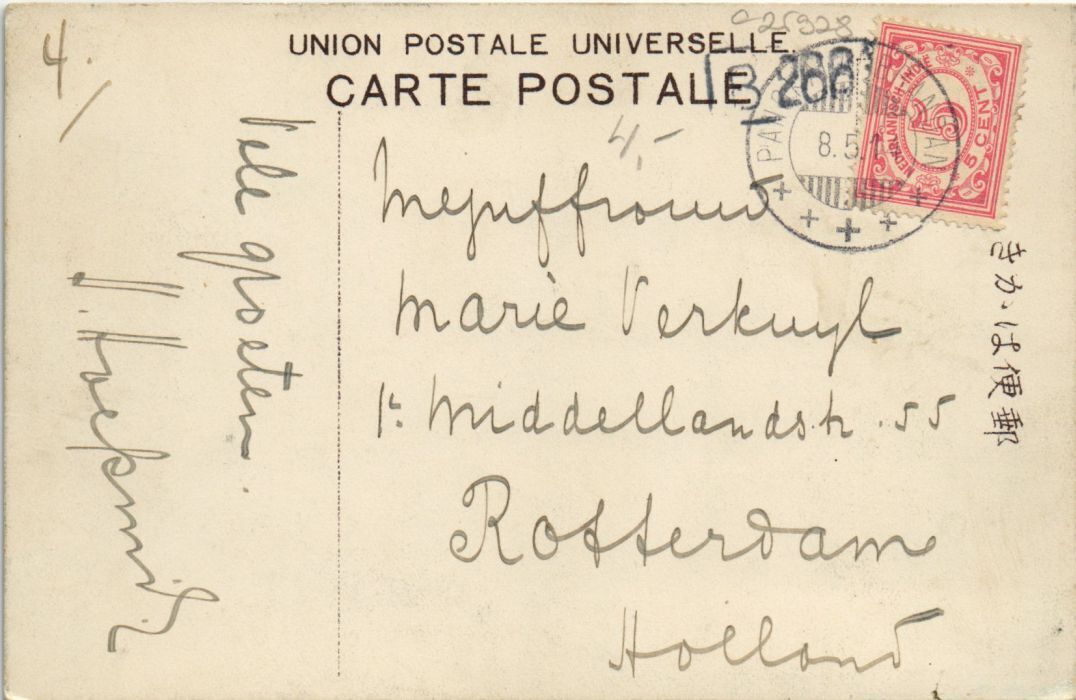 UNION POSTALE UNIVERSELLE.
CARTE POSTALE
025328
B 266
4,-
8.5.1
NEDERLANDSCH-INDIË
5 CENT
4.
Vele groeten
Mejuffrouw
Marie Verkuyl
1e Middellandstr. 55
Rotterdam
Holland
きかは便郵